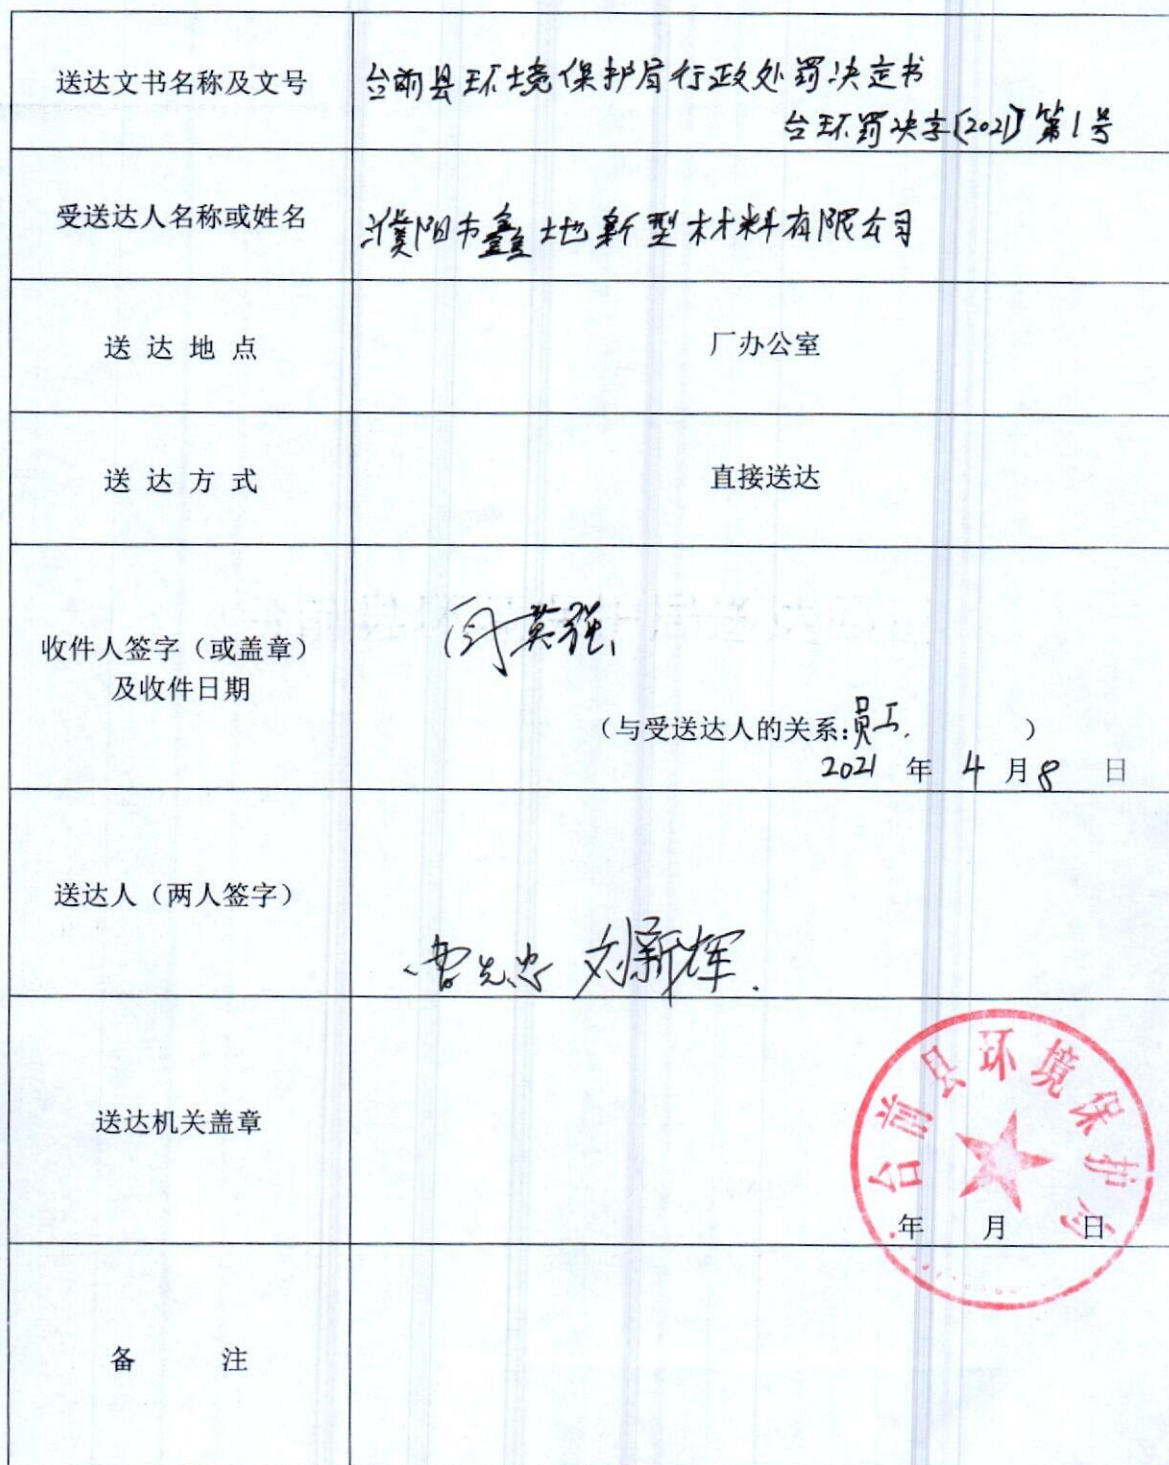 送达文书名称及文号
台前县环境保护局行政处罚决定书
台环罚决字〔2021〕第1号
受送达人名称或姓名
濮阳市鑫地新型材料有限公司
送 达 地 点
厂办公室
送 达 方 式
直接送达
收件人签字（或盖章）
及收件日期
英强
（与受送达人的关系:员工. ）
2021 年 4 月 8 日
送达人（两人签字）
曹先忠 刘新辉.
送达机关盖章
台前县环境保护局
年 月 日
备 注